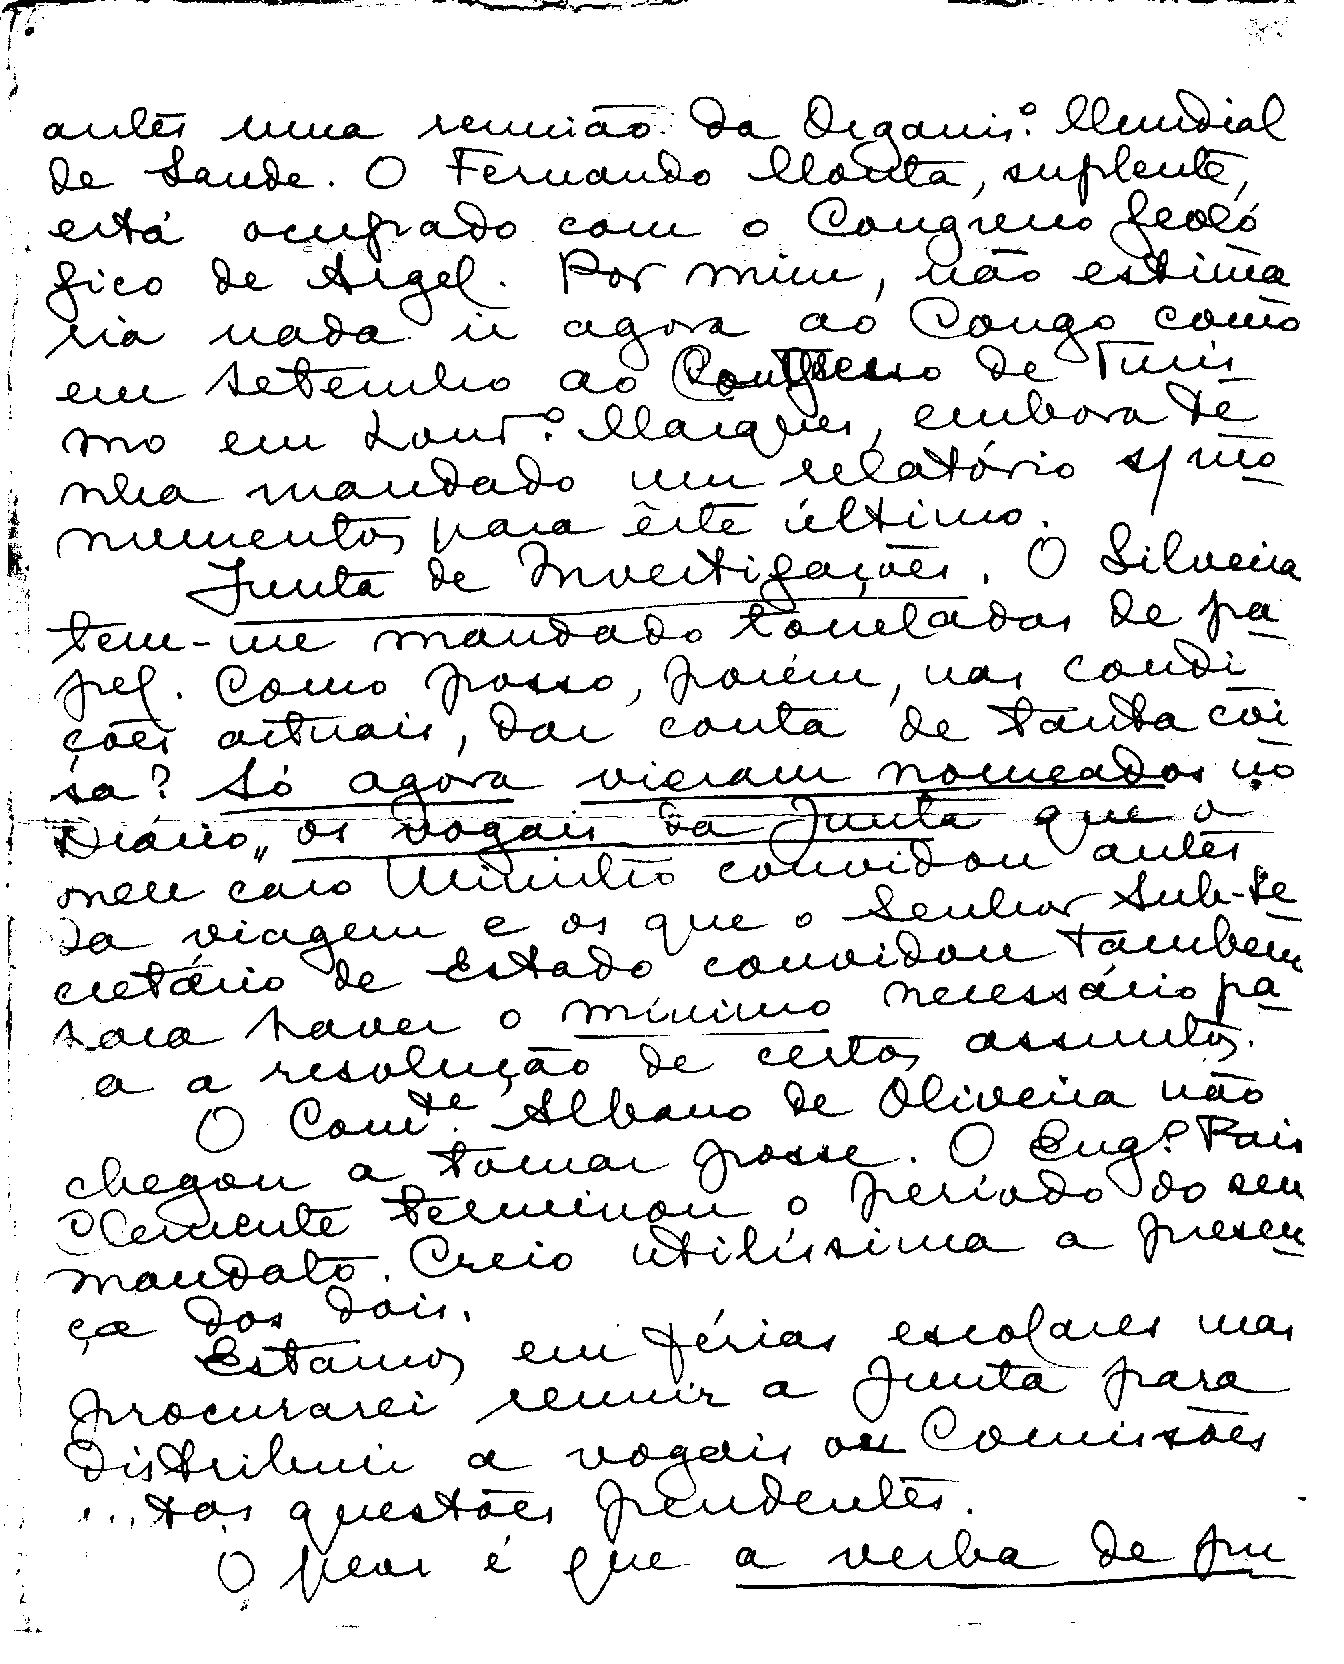 antes uma reunião da Organis.º Mundial
de Saude. O Fernando Mouta, suplente,
está ocupado com o Congresso geoló
gico de Argel. Por mim, não estima
ria nada ir agora ao Congo como
em setembro ao Congresso de Turis
mo em Lour.º Marques, embora te
nha mandado um relatório s/ mo
numentos para êste último.
Junta de Investigações. O Silveira
tem-me mandado toneladas de pa
pel. Como posso, porém, nas condi
ções actuais, dar conta de tanta coi
sa? Só agora vieram nomeados no
"Diário" os vogais da Junta que o
meu caro Ministro convidou antes
da viagem e os que o Senhor Sub-Se
cretário de Estado convidou tambem
para haver o mínimo necessário pa
a a resolução de certos assuntos.
O Com.te Albano de Oliveira não
chegou a tomar posse. O Eng.º Pais
Clemente terminou o período do seu
mandato. Creio utilíssima a presen
ça dos dois.
Estamos em férias escolares mas
procurarei reunir a Junta para
distribuir a vogais ou Comissões
tas questões pendentes.
O peor é que a verba de pu